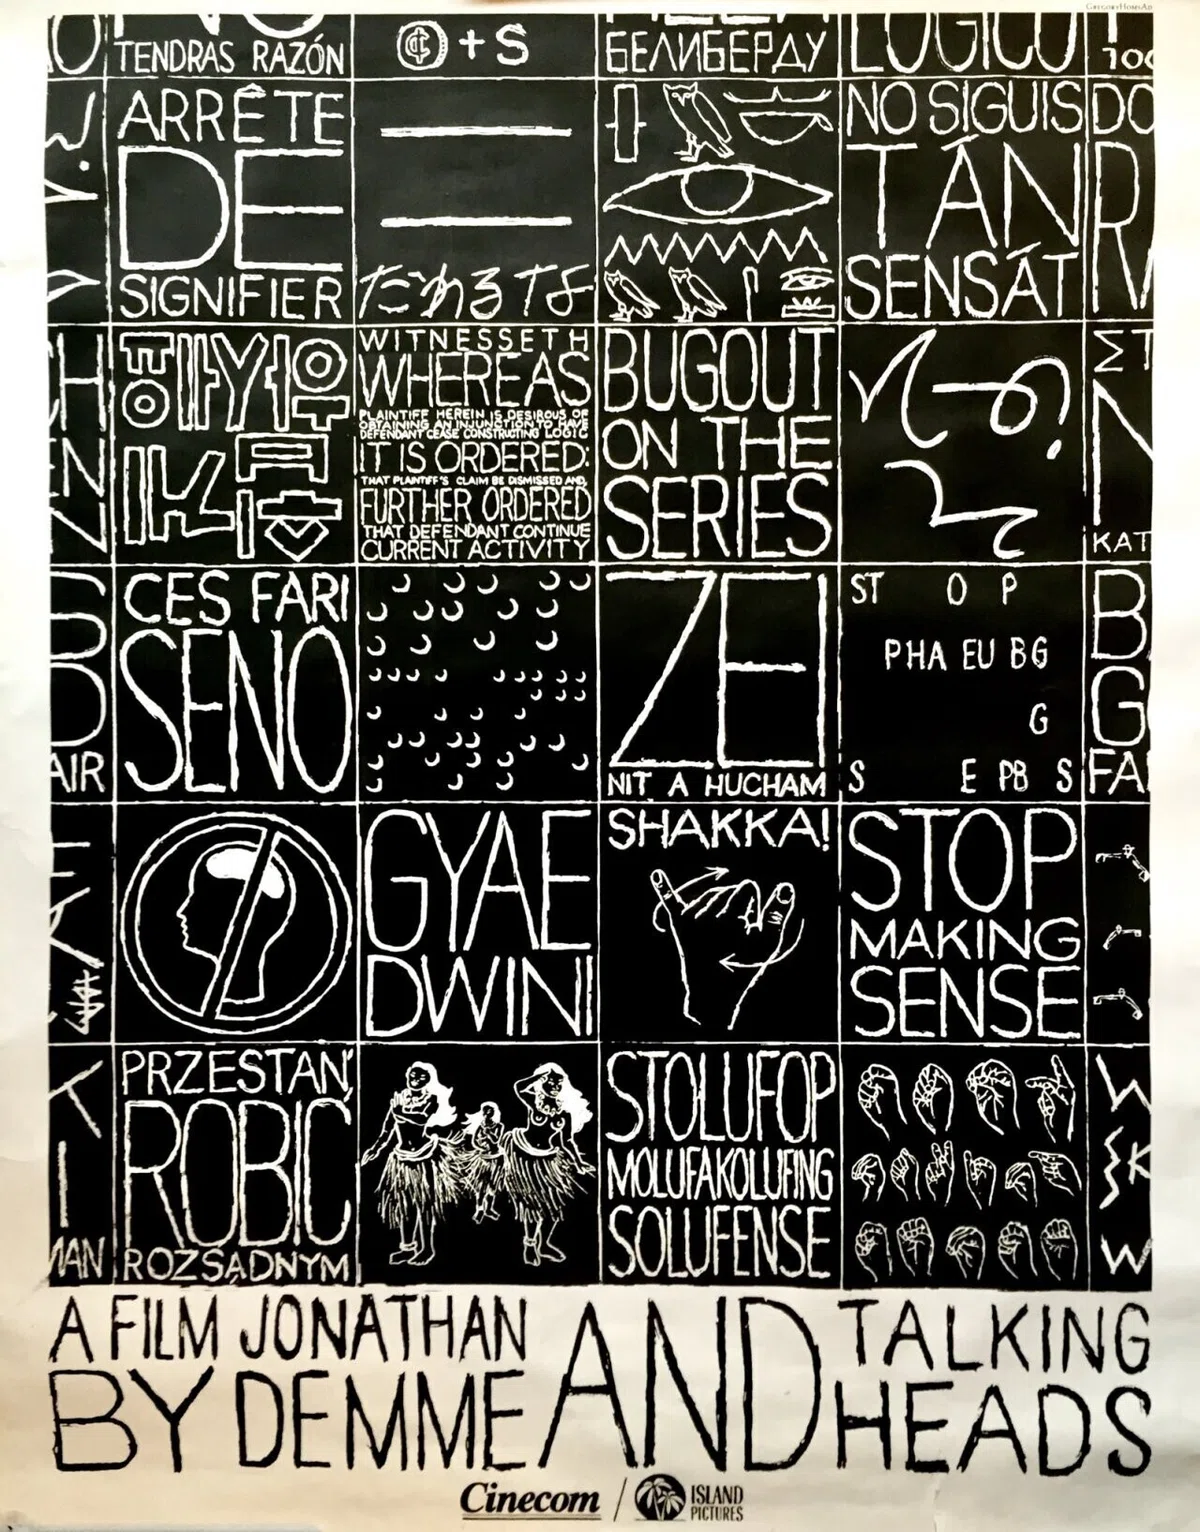 GREGORY HOMS AD
TENDRAS RAZÓN
+ S
БЕЛИБЕРДУ
LOGICO
100
ARRÊTE
DE
SIGNIFIER
NO SIGUIS
TÁN
SENSÁT
DO
WITNESSETH
WHEREAS
PLAINTIFF HEREIN IS DESIROUS OF
OBTAINING AN INJUNCTION TO HAVE
DEFENDANT CEASE CONSTRUCTING LOGIC
IT IS ORDERED:
THAT PLAINTIFF'S CLAIM BE DISMISSED AND,
FURTHER ORDERED
THAT DEFENDANT CONTINUE
CURRENT ACTIVITY
BUGOUT
ON THE
SERIES
KAT
AIR
CES FARI
SENO
ZEI
NIT A HUCHAM
ST O P
PHA EU BG
G
S E PB S
B
G
FA
GYAE
DWINI
SHAKKA!
STOP
MAKING
SENSE
MAN
PRZESTAŃ
ROBIĆ
ROZSĄDNYM
STOLUFOP
MOLUFAKOLUFING
SOLUFENSE
A FILM JONATHAN
BY DEMME
AND
TALKING
HEADS
Cinecom / ISLAND
PICTURES